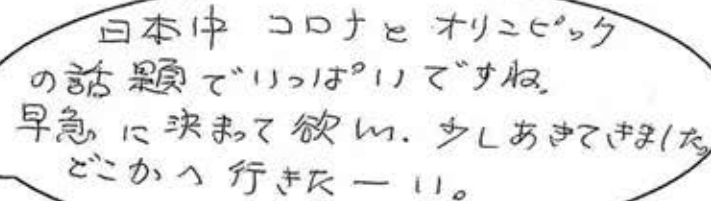 日本中 コロナと オリンピック
の話題でいっぱいですね。
早急に決まって欲しい. 少しあきてきました。
どこかへ行きたーい。